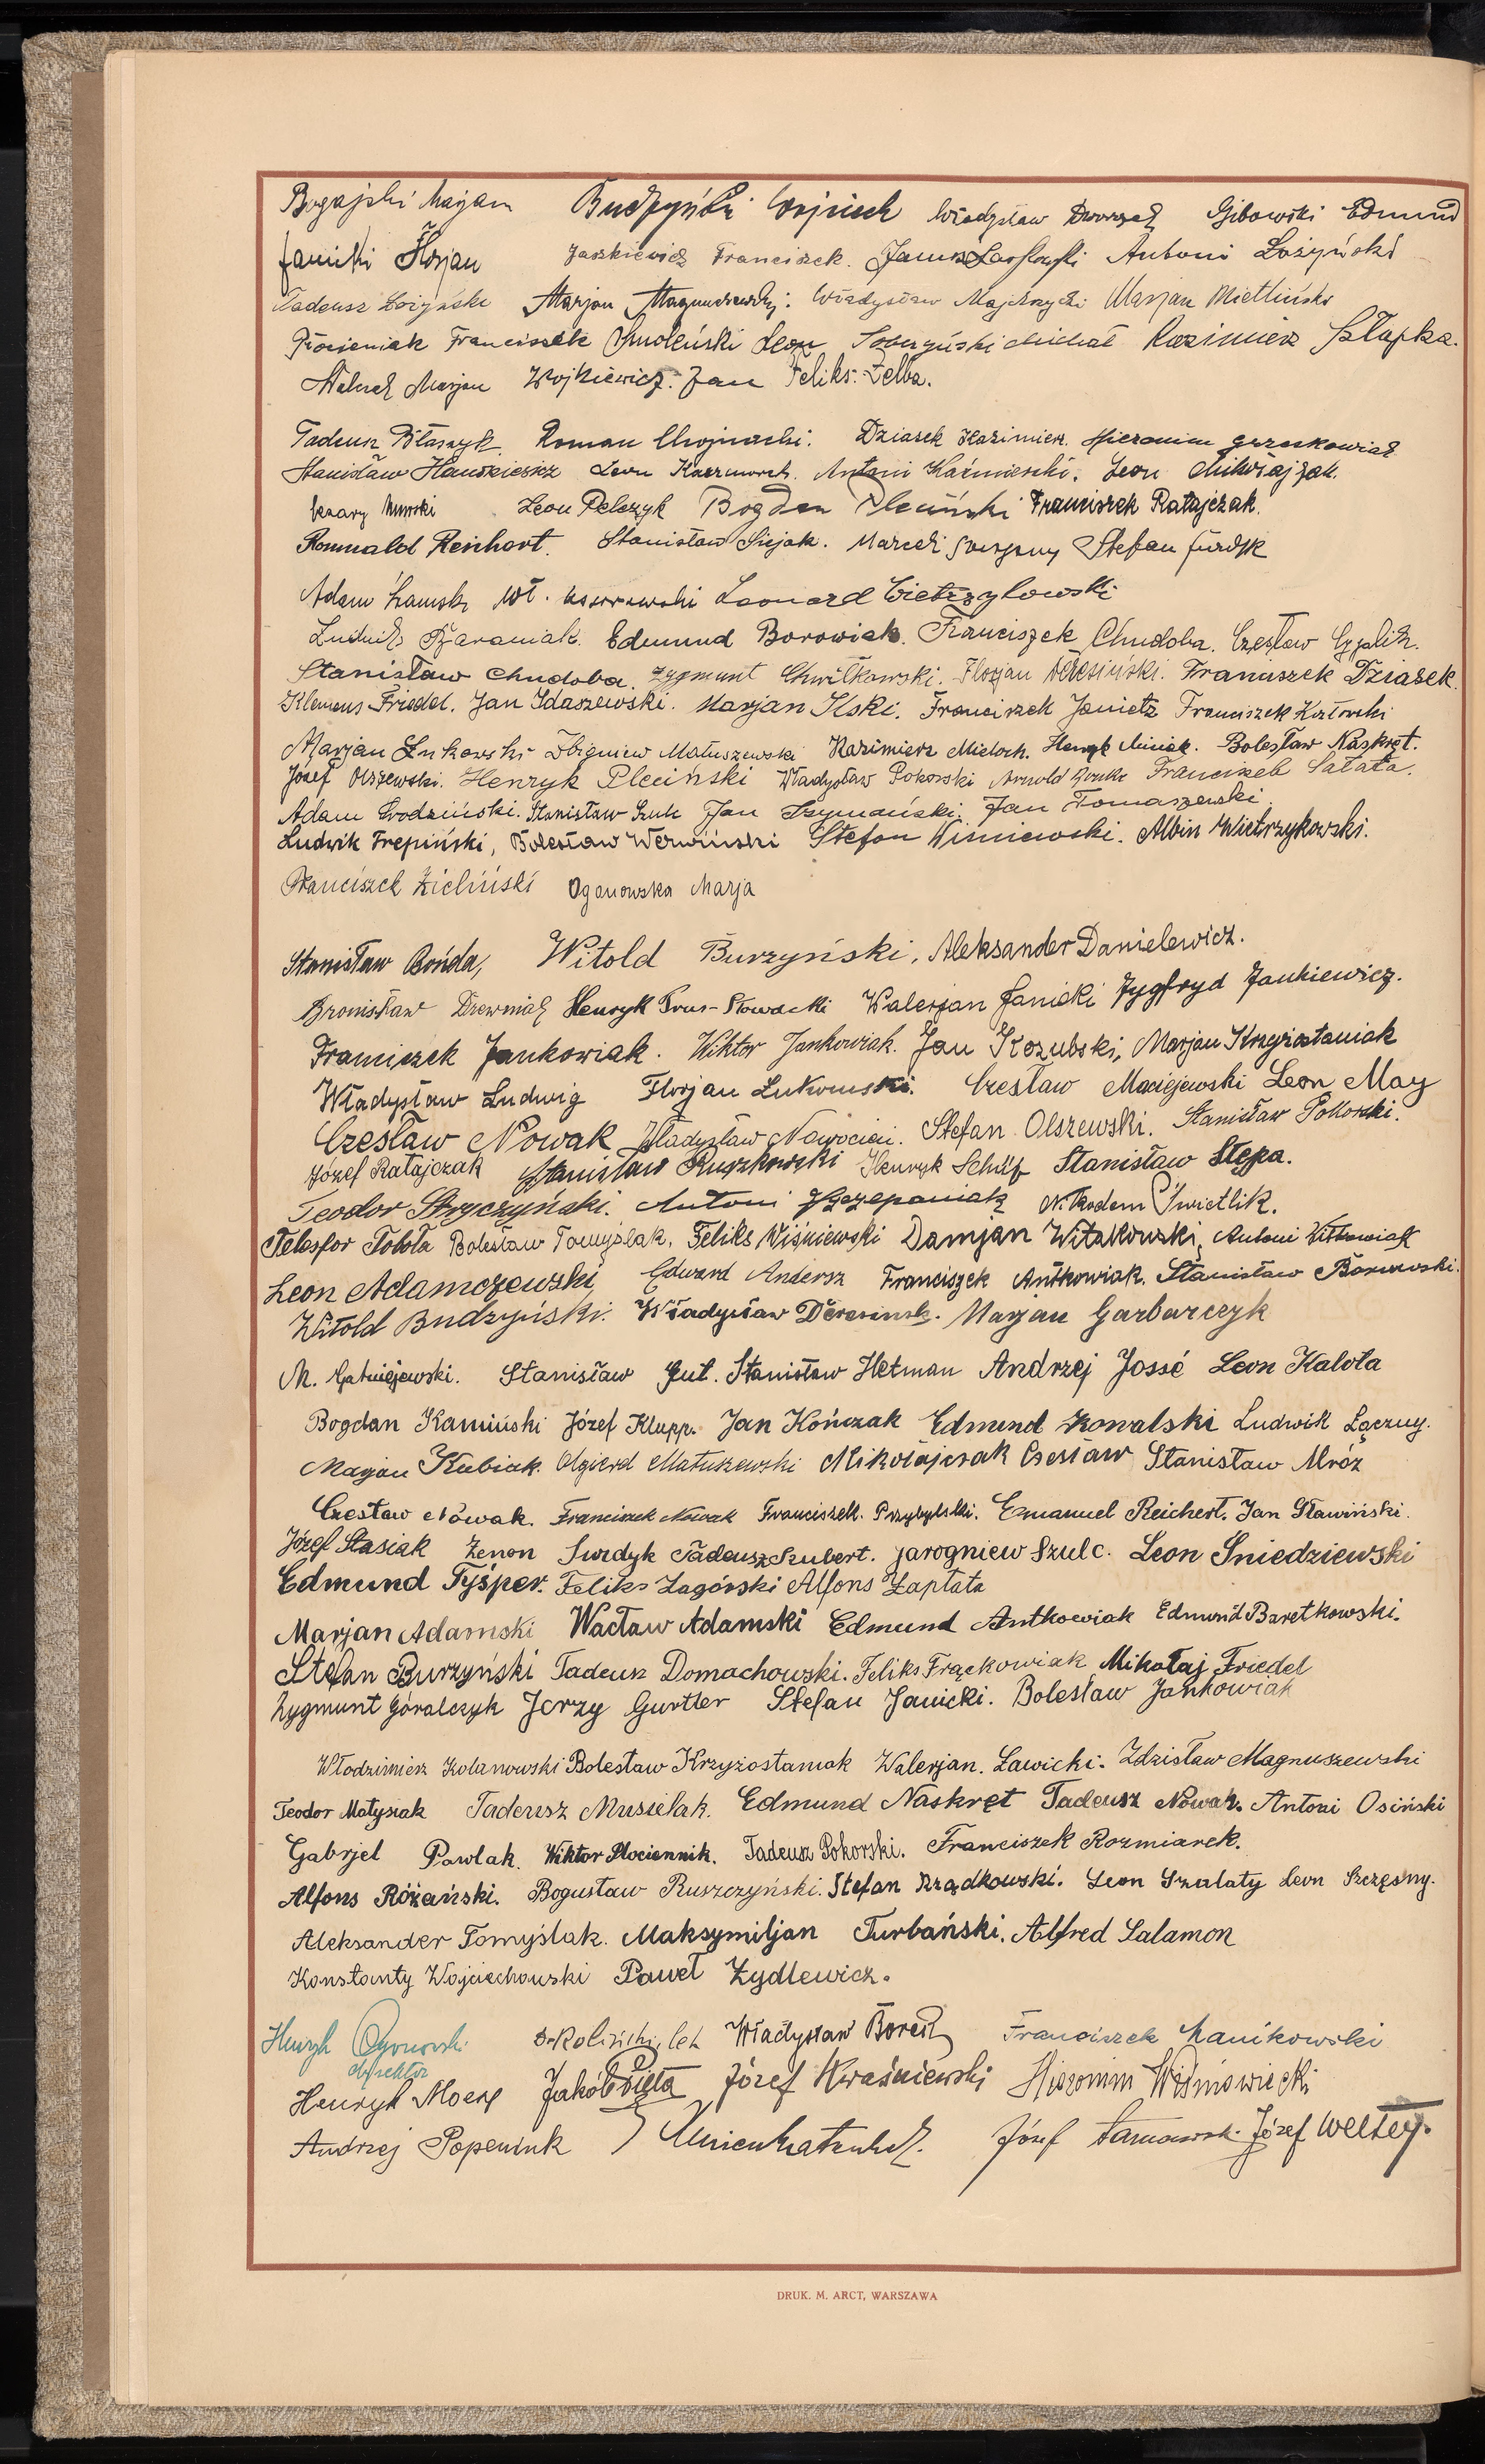 Bogajski Marjan Budzyński Wojciech Władysław Dworzak Gibowski Edmund
Janicki Florjan Jaszkiewicz Franciszek. Janusz Antoni Łożyński
Tadeusz Łożyński Marjan Magnuszewski. Władysław Marjan Mietliński
Płócieniak Franciszek Smoleński Leon Sobczyński Michał Kazimierz Szlapka.
Marjan Wojkiewicz. Jan Feliks. Żelba.
Tadeusz Błaszyk. Roman Chojnacki. Dziasek Kazimierz. Hieronim Grzeskowiak
Stanisław Hauszkiewicz Leon Kaczmarek. Antoni Kaźmierski. Leon Mikołajczak.
Cezary Leon Pelczyk Bogdan Pleciński Franciszek Ratajczak.
Romuald Reichert. Stanisław Siejak. Marceli Stefan Surdyk
Adam Wł. Leonard Wietrzykowski
Ludwik Baraniak. Edmund Borowiak. Franciszek Chudoba. Czesław
Stanisław Chudoba. Zygmunt Chwiłkowski. Florjan Dereziński. Franciszek Dziasek.
Klemens Friedel. Jan Idaszewski. Marjan Ilski. Franciszek Janietz Franciszek Kozłowski
Marjan Łukowski Zbigniew Matuszewski Kazimierz Mieloch. Henryk Miniak. Bolesław Naskręt.
Józef Olszewski. Henryk Pleciński Władysław Pokorski Arnold Franciszek Sałata.
Adam Środziński. Stanisław Szulc Jan Szymański. Jan Tomaszewski
Ludwik Trepiński, Bolesław Werwiński Stefan Wiśniewski. Albin Wietrzykowski.
Franciszek Zieliński Oganowska Marja
Stanisław Bońda, Witold Burzyński, Aleksander Danielewicz.
Bronisław Drewniak Henryk Prus-Słowacki Walerjan Janicki Zygfryd Jankiewicz.
Franciszek Jankowiak. Wiktor Jankowiak. Jan Kozubski, Marjan Krzyżostaniak
Władysław Ludwig Florjan Łukomski. Czesław Maciejewski Leon May
Czesław Nowak Władysław Nawrocki. Stefan Olszewski. Stanisław Pokorski.
Józef Ratajczak Stanisław Ruszkowski Henryk Schulz Stanisław Stępa.
Teodor Stryczyński. Antoni Szczepaniak Nikodem Świetlik.
Telesfor Toboła Bolesław Tomyślak, Feliks Wiśniewski Damjan Witakowski, Antoni Witkowiak
Leon Adamczewski, Edward Andersz Franciszek Antkowiak. Stanisław Borowski.
Witold Budzyński. Władysław Marjan Garbarczyk
M. Gatniejewski. Stanisław Gut. Stanisław Hetman Andrzej Jossé Leon Kalota
Bogdan Kamiński Józef Klupp. Jan Kończak Edmund Kowalski Ludwik Łączny.
Marjan Kubiak. Olgierd Matuszewski Mikołajczak Czesław Stanisław Mróz
Czesław Nowak. Franciszek Nowak Franciszek Przybylski. Emanuel Reichert. Jan Sławiński.
Józef Stasiak Zenon Surdyk Tadeusz Szubert. Jarogniew Szulc. Leon Śniedziewski
Edmund Tyśper. Feliks Zagórski Alfons Zapłata
Marjan Adamski Wacław Adamski Edmund Antkowiak Edmund Baretkowski.
Stefan Burzyński Tadeusz Domachowski. Feliks Frąckowiak Mikołaj Friedel
Zygmunt Góralczyk Jerzy Gurtler Stefan Janicki. Bolesław Jankowiak
Włodzimierz Kolanowski Bolesław Krzyżostaniak Walerjan. Ławicki. Zdzisław Magnuszewski
Teodor Matysiak Tadeusz Musielak. Edmund Naskręt Tadeusz Nowak. Antoni Osiński
Gabrjel Pawlak. Wiktor Płóciennik. Tadeusz Pokorski. Franciszek Rozmiarek.
Alfons Różański. Bogusław Ruszczyński. Stefan Rządkowski. Leon Szalaty Leon Szczęsny.
Aleksander Tomyślak. Maksymiljan Turbański. Alfred Salamon
Konstanty Wojciechowski Paweł Żydlewicz.
Henryk Ogonowski Władysław Borek Franciszek Manikowski
dyrektor
Henryk Jakób Józef Kwaśniewski Hieronim Wiśniowiecki
Andrzej Popeniuk Józef Józef
DRUK. M. ARCT, WARSZAWA